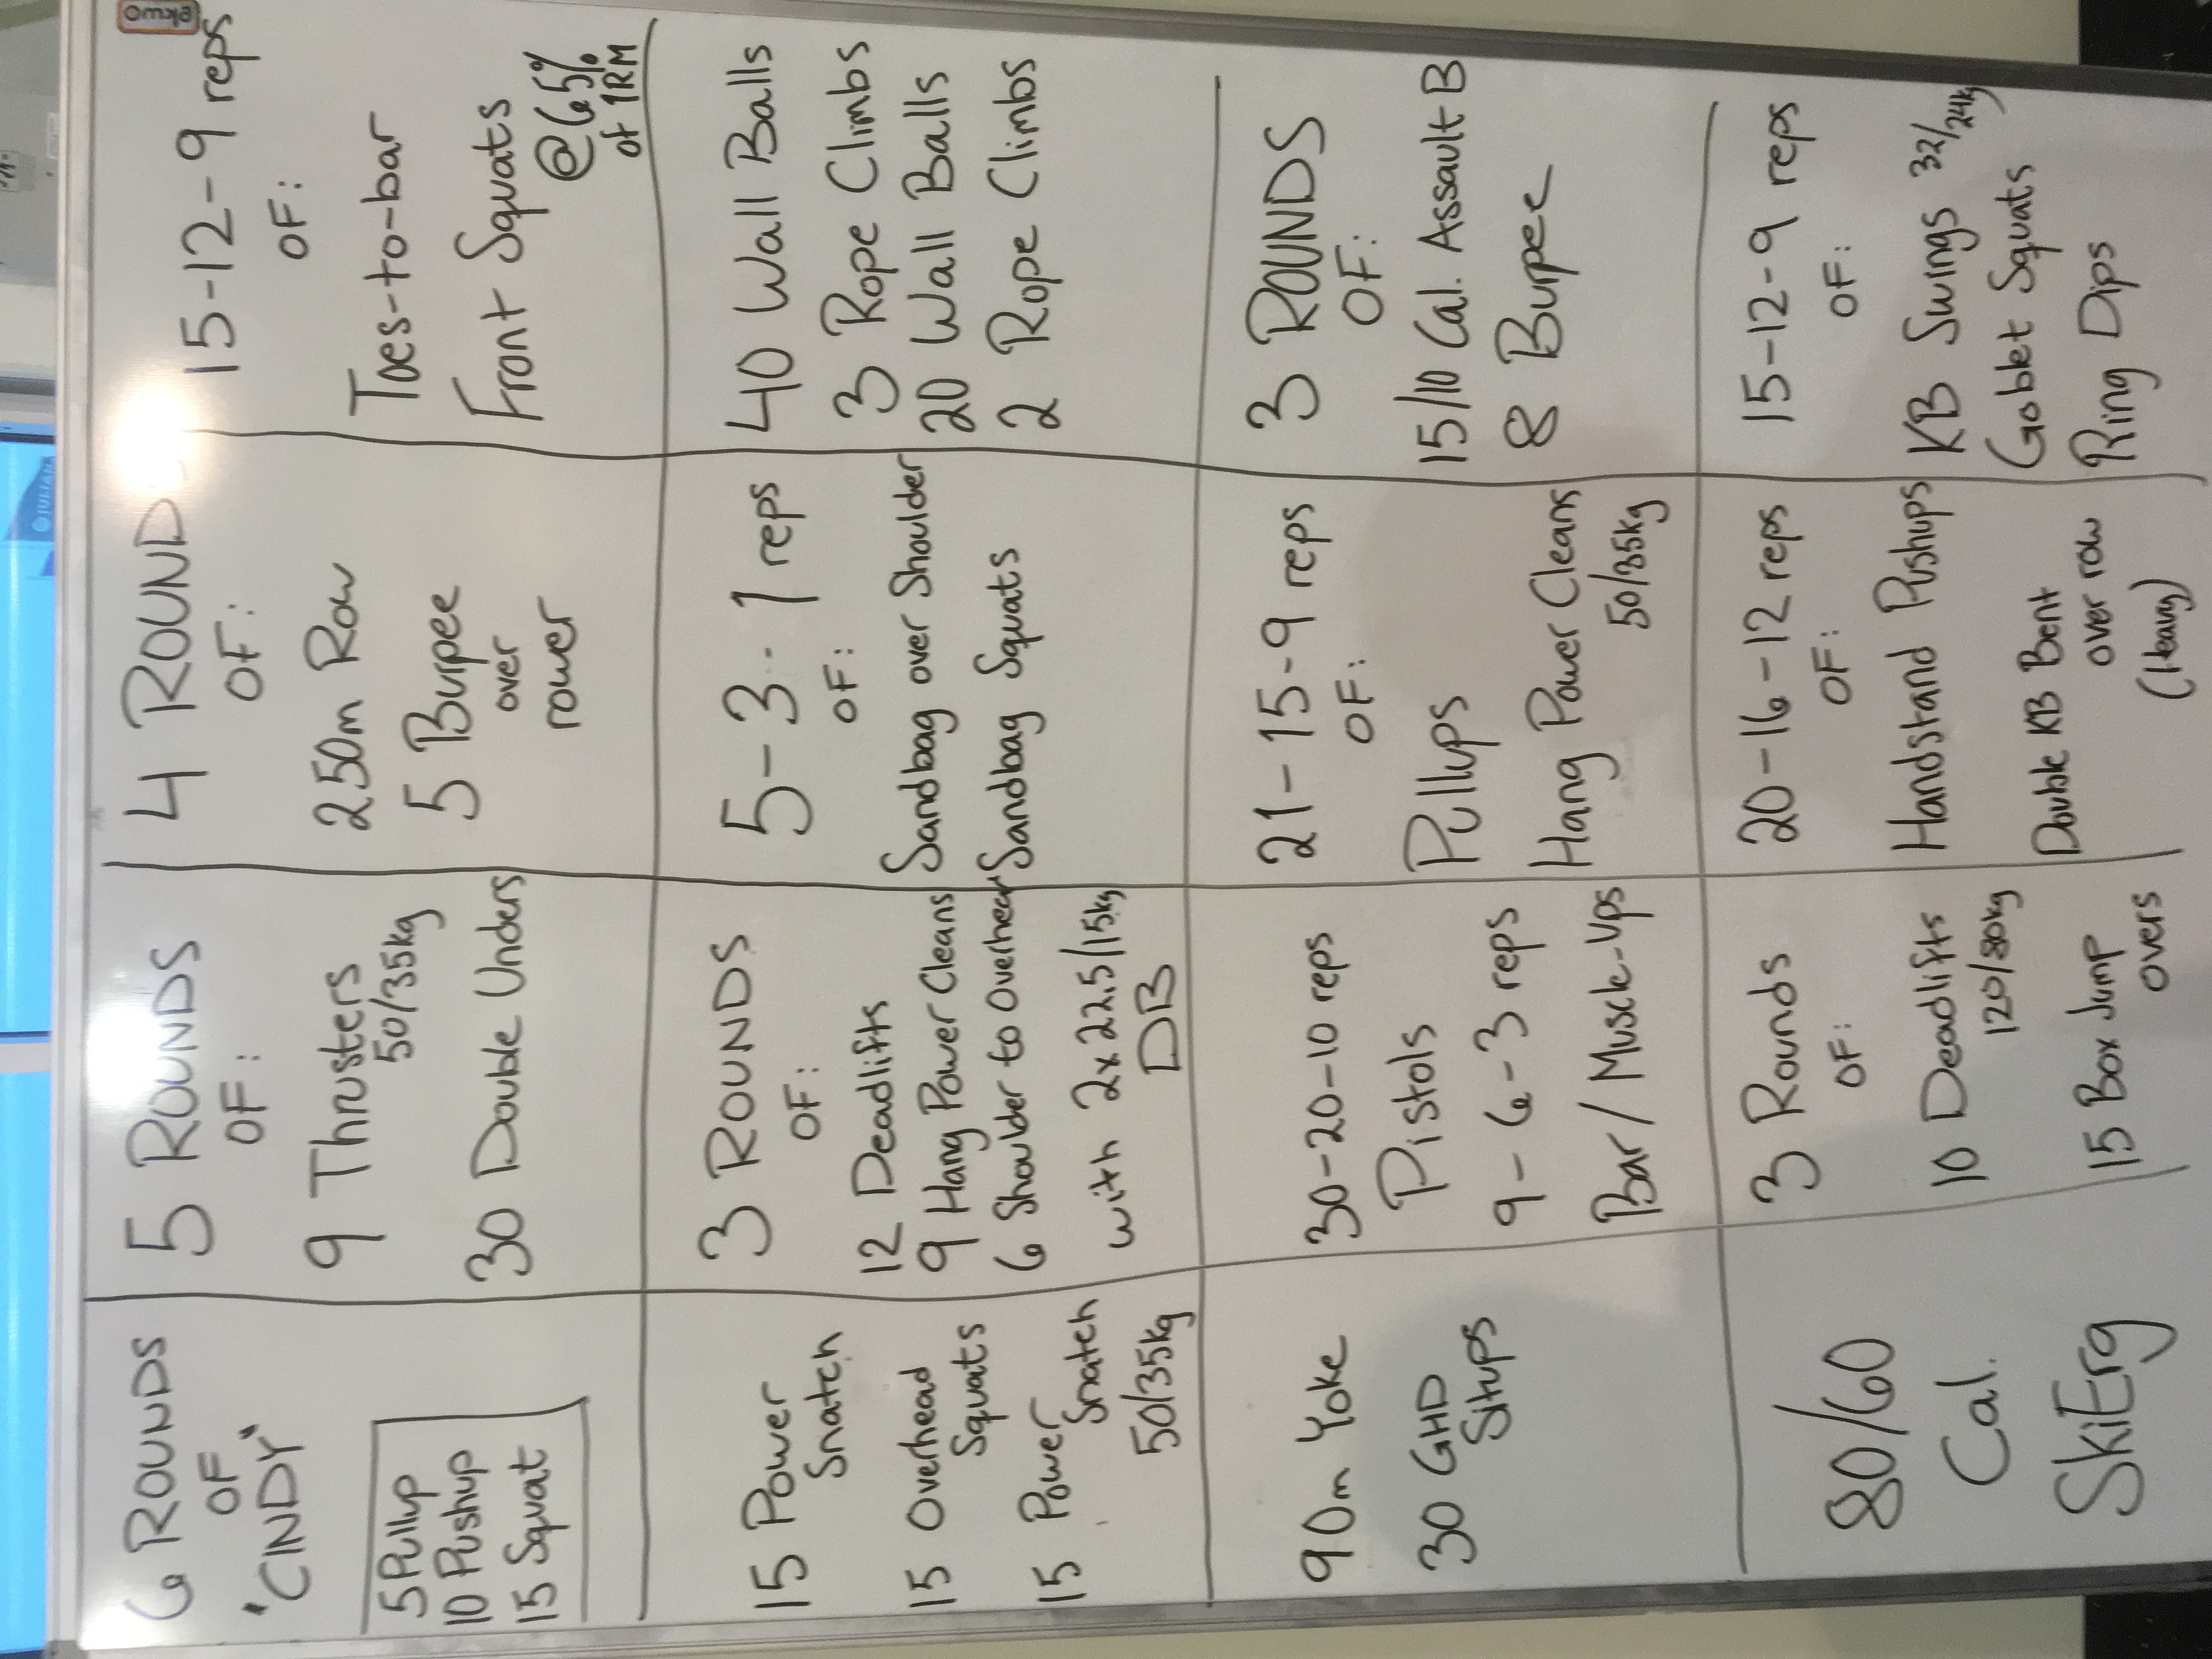 6 ROUNDS
OF
"CINDY"
5 Pullup
10 Pushup
15 Squat
5 ROUNDS
OF:
9 Thrusters
50/35kg
30 Double Unders
4 ROUNDS
OF:
250m Row
5 Burpee
over
rower
15-12-9 reps
OF:
Toes-to-bar
Front Squats
@65%
of 1RM
15 Power
Snatch
15 Overhead
Squats
15 Power
Snatch
50/35kg
3 ROUNDS
OF:
12 Deadlifts
9 Hang Power Cleans
6 Shoulder to Overhead
with 2x22.5/15kg
DB
5-3-1 reps
OF:
Sandbag over Shoulder
Sandbag Squats
40 Wall Balls
3 Rope Climbs
20 Wall Balls
2 Rope Climbs
90m Yoke
30 GHD
Situps
30-20-10 reps
Pistols
9-6-3 reps
Bar/Muscle-Ups
21-15-9 reps
OF:
Pullups
Hang Power Cleans
50/35kg
3 ROUNDS
OF:
15/10 Cal. Assault B
8 Burpee
80/60
Cal.
SkiErg
3 Rounds
OF:
10 Deadlifts
120/80kg
15 Box Jump
overs
20-16-12 reps
OF:
Handstand Pushups
Double KB Bent
over row
(Heavy)
15-12-9 reps
OF:
KB Swings 32/24kg
Goblet Squats
Ring Dips